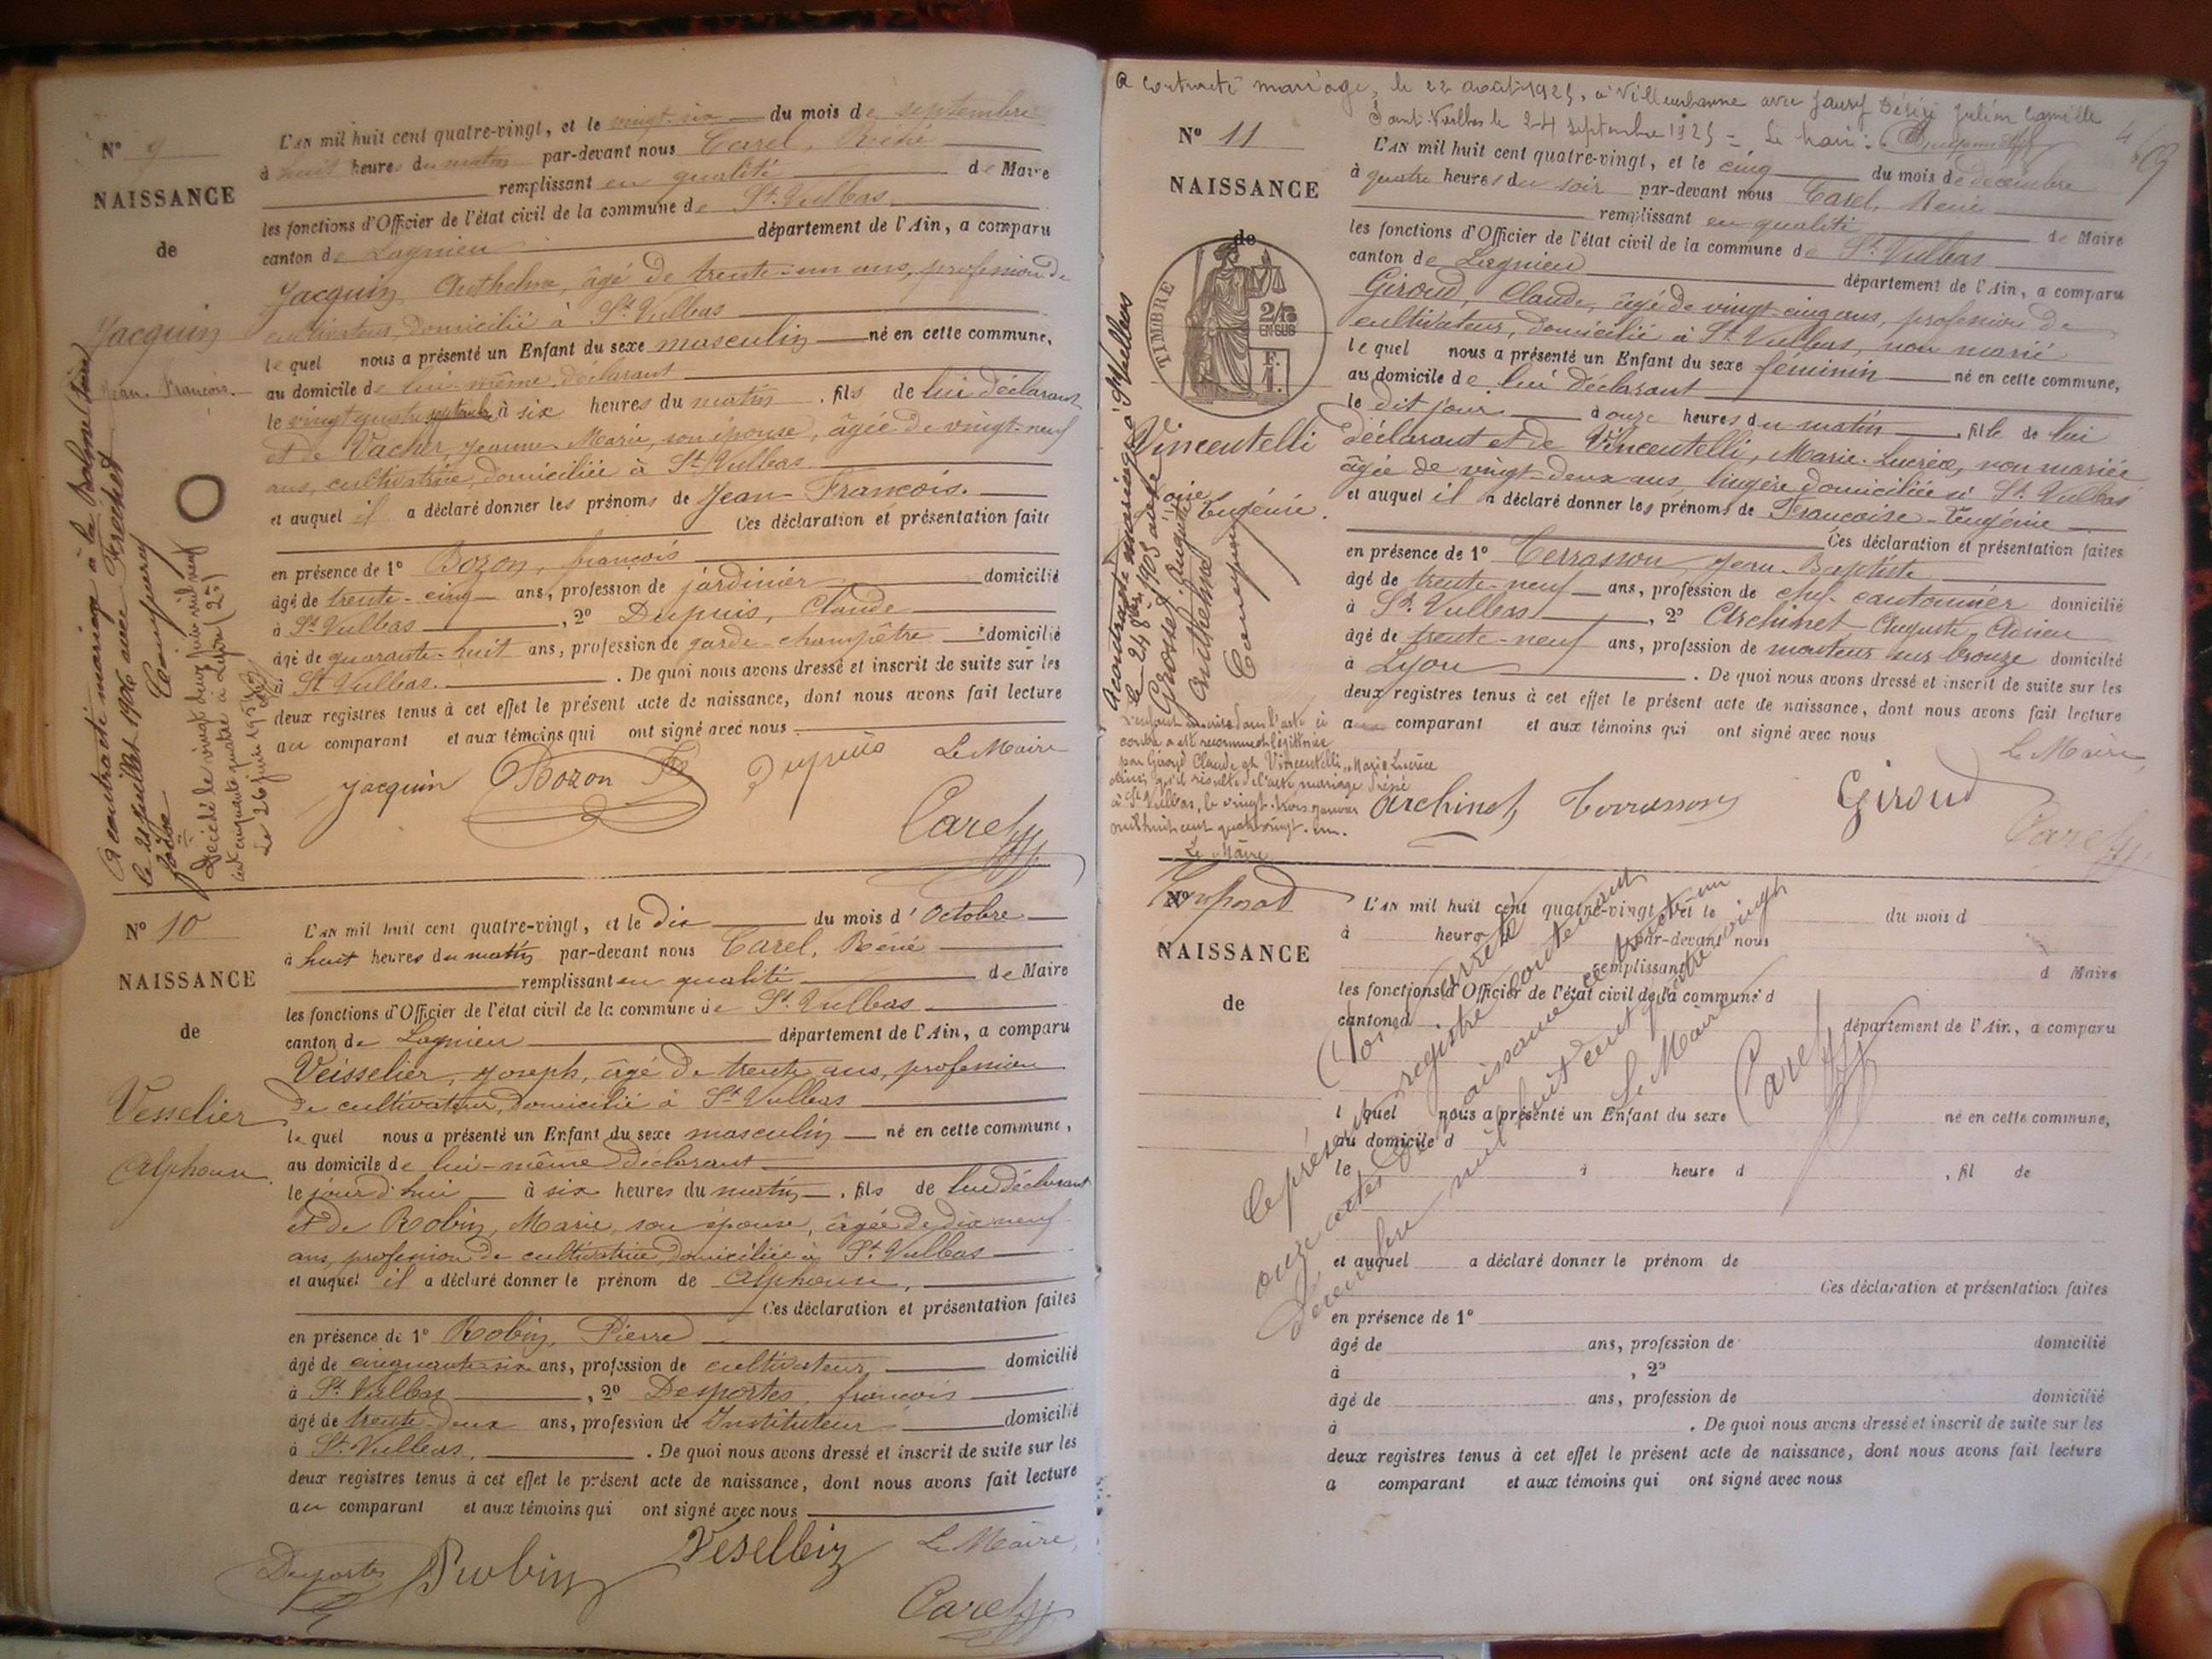 Nº 9
NAISSANCE
de
Jacquin
Jean-François.
L'AN mil huit cent quatre-vingt, et le vingt-six du mois de septembre
à huit heures du matin par-devant nous Carel, René
remplissant en qualité de Maire
les fonctions d'Officier de l'état civil de la commune de St. Vulbas
canton de Lagnieu département de l'Ain, a comparu
Jacquin Anthelme, âgé de trente-un ans, profession de
cultivateur, domicilié à St. Vulbas
lequel nous a présenté un Enfant du sexe masculin né en cette commune,
au domicile de lui-même déclarant
le vingt quatre septembre à six heures du matin, fils de lui déclarant
et de Vacher, Jeanne-Marie, son épouse, âgée de vingt-neuf
ans, cultivatrice, domiciliée à St. Vulbas
et auquel il a déclaré donner les prénoms de Jean-François.
Ces déclaration et présentation faite
en présence de 1º Bozon, françois
âgé de trente-cinq ans, profession de jardinier domicilié
à St Vulbas, 2º Dupuis, Claude
âgé de quarante-huit ans, profession de garde-champêtre domicilié
à St Vulbas. De quoi nous avons dressé et inscrit de suite sur les
deux registres tenus à cet effet le présent acte de naissance, dont nous avons fait lecture
au comparant et aux témoins qui ont signé avec nous
Le Maire
Jacquin Bozon Fs Dupuis
Carel
A contracté mariage à la Balme (Isère)
le 21 juillet 1906 avec Fréchet
Décédé le vingt deux juin mil neuf
cent cinquante quatre à Lyon (2e)
Le 26 juin 1954
Nº 10
NAISSANCE
de
Vesselier
Alphonse.
L'AN mil huit cent quatre-vingt, et le dix du mois d'Octobre
à huit heures du matin par-devant nous Carel, Réné
remplissant en qualité de Maire
les fonctions d'Officier de l'état civil de la commune de St. Vulbas
canton de Lagnieu département de l'Ain, a comparu
Veisselier, Joseph, âgé de trente ans, profession
de cultivateur, domicilié à St Vulbas
lequel nous a présenté un Enfant du sexe masculin né en cette commune,
au domicile de lui-même déclarant
le jour d'hui à six heures du matin, fils de lui déclarant
et de Robin, Marie, son épouse, âgée de dix neuf
ans, profession de cultivatrice domiciliée à St. Vulbas
et auquel il a déclaré donner le prénom de Alphonse,
Ces déclaration et présentation faites
en présence de 1º Robin, Pierre
âgé de cinquante-six ans, profession de cultivateur domicilié
à St. Vulbas, 2º Desportes, françois
âgé de trente-deux ans, profession de Instituteur domicilié
à St. Vulbas. De quoi nous avons dressé et inscrit de suite sur les
deux registres tenus à cet effet le présent acte de naissance, dont nous avons fait lecture
au comparant et aux témoins qui ont signé avec nous
Desportes Robin Le Maire,
Carel
A contracté mariage, le 22 août 1925, à Villeurbanne avec Désiré Julien Camille
Saint-Vulbas le 24 septembre 1925 - Le Maire:
Nº 11
NAISSANCE
de
TIMBRE
2/10
EN SUS
F.
Vincentelli
Françoise
Eugénie.
L'AN mil huit cent quatre-vingt, et le cinq du mois de décembre
à quatre heures du soir par-devant nous Carel, René
remplissant en qualité de Maire
les fonctions d'Officier de l'état civil de la commune de St. Vulbas
canton de Lagnieu département de l'Ain, a comparu
Giroud, Claude, âgé de vingt-cinq ans, profession de
cultivateur, domicilié à St. Vulbas, non marié
lequel nous a présenté un Enfant du sexe féminin né en cette commune,
au domicile de lui déclarant
le dit jour à onze heures du matin, fille de lui
déclarant et de Vincentelli, Marie-Lucrèce, non mariée
âgée de vingt-deux ans, lingère domiciliée à St. Vulbas
et auquel il a déclaré donner les prénoms de Françoise-Eugénie
Ces déclaration et présentation faites
en présence de 1º Terrasson, Jean-Baptiste
âgé de trente-neuf ans, profession de chef-cantonnier domicilié
à St. Vulbas, 2º Archinet Auguste Adrien
âgé de trente-neuf ans, profession de monteur sur bronze domicilié
à Lyon. De quoi nous avons dressé et inscrit de suite sur les
deux registres tenus à cet effet le présent acte de naissance, dont nous avons fait lecture
au comparant et aux témoins qui ont signé avec nous
Le Maire,
Archinet Terrasson Giroud
Carel
A contracté mariage à St Vulbas
le 24 8bre 1905 avec
Grosset, Auguste
Anthelme
L'enfant inscrit dans l'acte ci
contre a été reconnu et légitimée
par Giroud Claude et Vincentelli, Marie Lucrèce
ainsi qu'il résulte de l'acte mariage dressé
à St Vulbas, le vingt-trois janvier
mil huit cent quatre vingt-un.
Le Maire
Nº
NAISSANCE
de
L'AN mil huit cent quatre-vingt, et le du mois d
à heure d par-devant nous
remplissant d Maire
les fonctions d'Officier de l'état civil de la commune d
canton d département de l'Ain, a comparu
lequel nous a présenté un Enfant du sexe né en cette commune,
au domicile d
le à heure d, fil de
et auquel a déclaré donner le prénom de
Ces déclaration et présentation faites
en présence de 1º
âgé de ans, profession de domicilié
à, 2º
âgé de ans, profession de domicilié
à. De quoi nous avons dressé et inscrit de suite sur les
deux registres tenus à cet effet le présent acte de naissance, dont nous avons fait lecture
a comparant et aux témoins qui ont signé avec nous
Clos et arrêté
le présent registre contenant
onze actes de naissance ce trente-un
Décembre mil huit cent quatre vingt
Le Maire
Carel